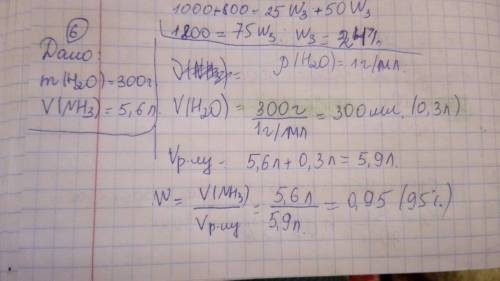 1000+800 = 25 W₃ + 50 W₃
1800 = 75 W₃ ; W₃ = 24%
⑥
Дано:
m(H₂O) = 300г
V(NH₃) = 5,6л
ρ(H₂O) = 1г/мл
V(H₂O) = 300г / 1г/мл = 300мл. (0,3л)
Vр-ну = 5,6л + 0,3л = 5,9л.
W = V(NH₃) / Vр-ну = 5,6л / 5,9л. = 0,95 (95%)